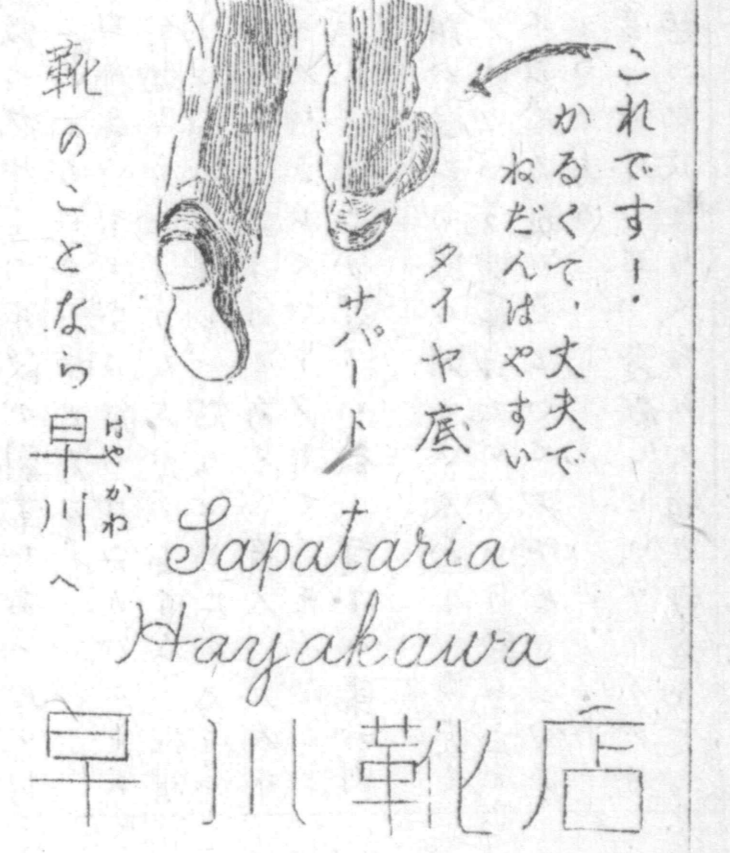 これです！
かるくて、丈夫で
ねだんはやすい
タイヤ底
サパート
靴のことなら早川へ
はやかわ
Sapataria
Hayakawa
早川靴店